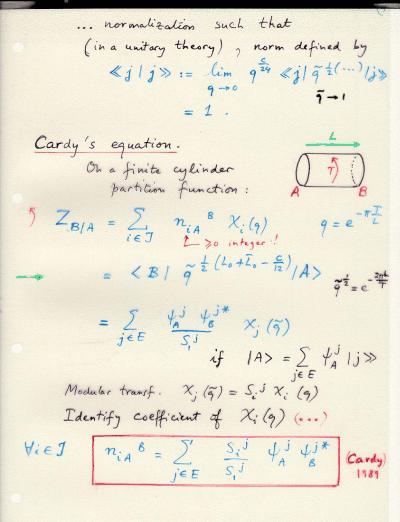 ... normalization such that
(in a unitary theory), norm defined by
⟪j|j⟫ := lim q→0 q^{c/24} ⟪j| q̃^{½(...)} |j⟫
q̃→1
= 1 .
Cardy's equation.
On a finite cylinder
partition function :
L
T
A B
Z_{B|A} = Σ_{i∈I} n_{iA}^B χ_i(q) q = e^{-π T/L}
≥0 integer !
= <B| q̃^{½(L₀+L̄₀-c/12)} |A> q̃^{½} = e^{-2πL/T}
= Σ_{j∈E} ψ_A^j ψ_B^{j*} / S_1^j χ_j(q̃)
if |A> = Σ_{j∈E} ψ_A^j |j⟫
Modular transf. χ_j(q̃) = S_i^j χ_i(q)
Identify coefficient of χ_i(q) (...)
∀i∈I n_{iA}^B = Σ_{j∈E} S_i^j / S_1^j ψ_A^j ψ_B^{j*} (Cardy)
1989